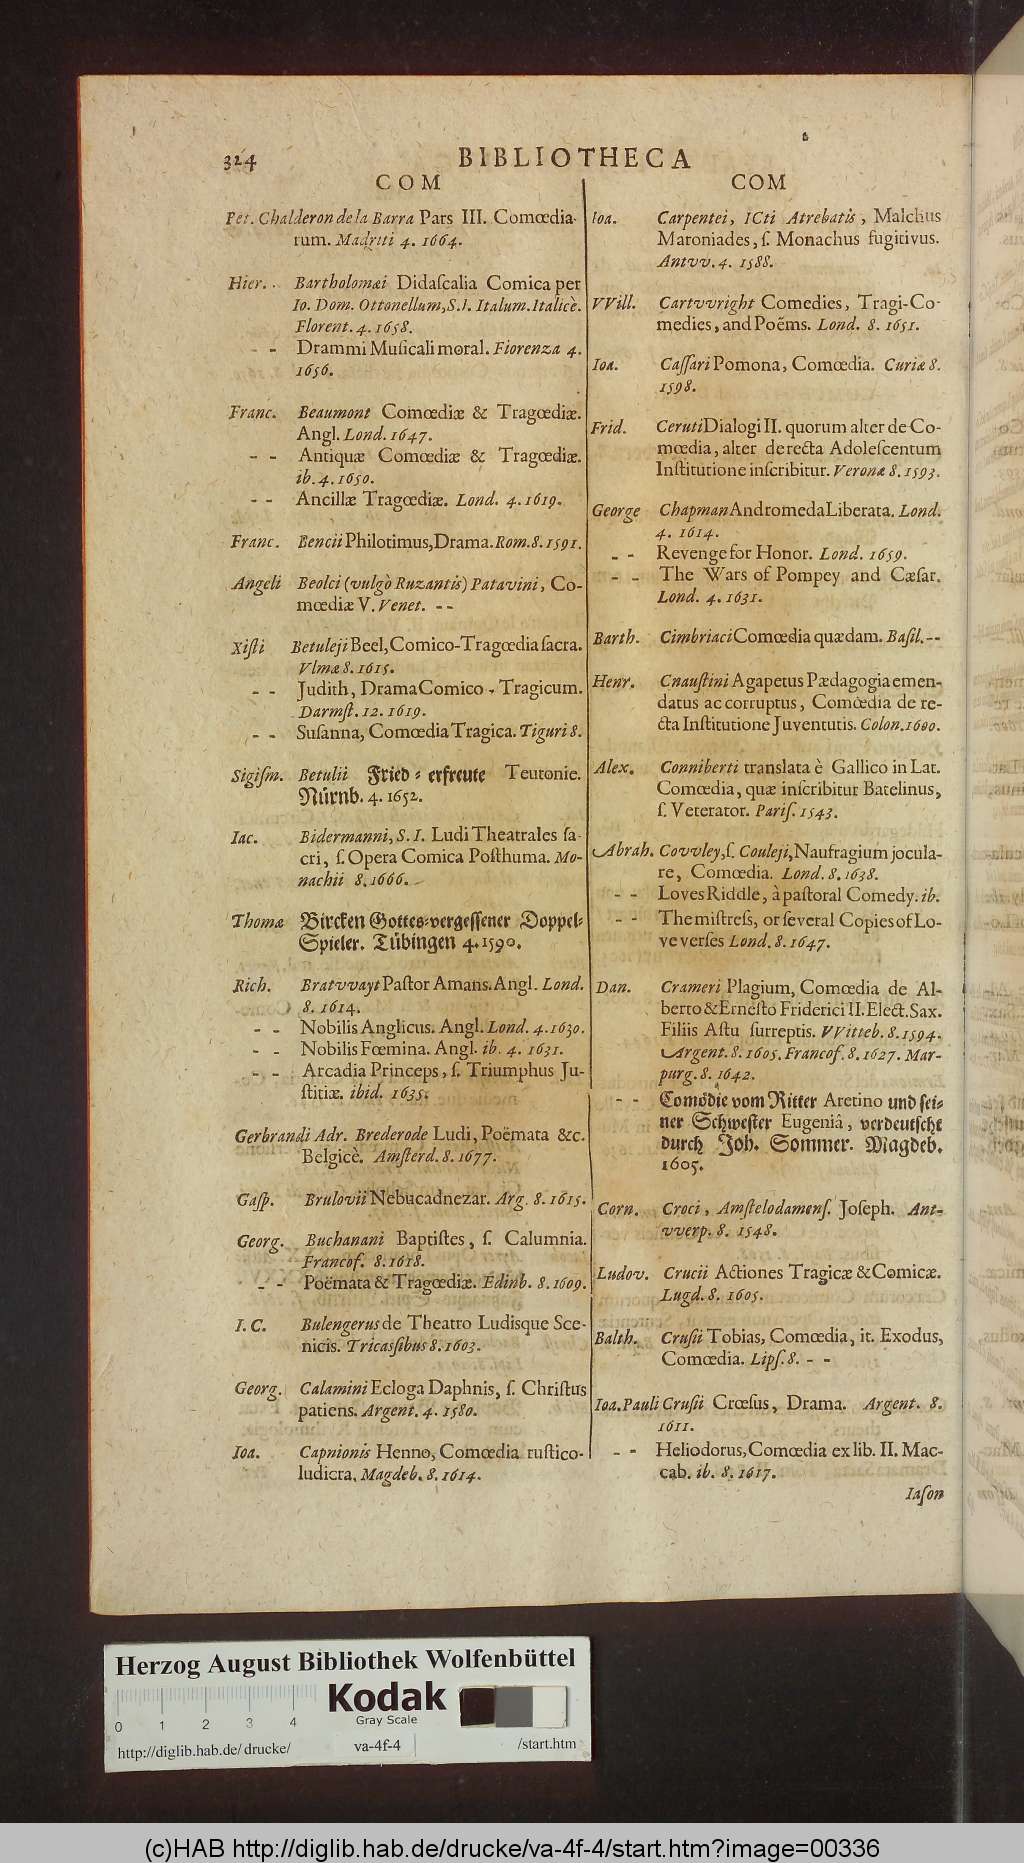 324
BIBLIOTHECA
COM
Pet. Chalderon de la Barra Pars III. Comœdia-
rum. Madriti 4. 1664.
Hier. Bartholomæi Didaſcalia Comica per
Io. Dom. Ottonellum, S. I. Italum. Italicè.
Florent. 4. 1658.
- - Drammi Muſicali moral. Fiorenza 4.
1656.
Franc. Beaumont Comœdiæ & Tragœdiæ.
Angl. Lond. 1647.
- - Antiquæ Comœdiæ & Tragœdiæ.
ib. 4. 1650.
- - Ancillæ Tragœdiæ. Lond. 4. 1619.
Franc. Bencii Philotimus, Drama. Rom. 8. 1591.
Angeli Beolci (vulgò Ruzantis) Patavini, Co-
mœdiæ V. Venet. - -
Xiſti Betuleji Beel, Comico-Tragœdia ſacra.
Vlmæ 8. 1615.
- - Judith, Drama Comico-Tragicum.
Darmſt. 12. 1619.
- - Suſanna, Comœdia Tragica. Tiguri 8.
Sigiſm. Betulii Fried-erfreute Teutonie.
Nürnb. 4. 1652.
Iac. Bidermanni, S. I. Ludi Theatrales ſa-
cri, ſ. Opera Comica Poſthuma. Mo-
nachii 8. 1666.
Thomæ Bircken Gottes-vergeſſener Doppel-
Spieler. Tübingen 4. 1590.
Rich. Bratvvayt Paſtor Amans. Angl. Lond.
8. 1614.
- - Nobilis Anglicus. Angl. Lond. 4. 1630.
- - Nobilis Fœmina. Angl. ib. 4. 1631.
- - Arcadia Princeps, ſ. Triumphus Ju-
ſtitiæ. ibid. 1635.
Gerbrandi Adr. Brederode Ludi, Poëmata &c.
Belgicè. Amſterd. 8. 1677.
Gaſp. Brulovii Nebucadnezar. Arg. 8. 1615.
Georg. Buchanani Baptiſtes, ſ. Calumnia.
Francof. 8. 1618.
- - Poëmata & Tragœdiæ. Edinb. 8. 1609.
I. C. Bulengerus de Theatro Ludisque Sce-
nicis. Tricaſſibus 8. 1603.
Georg. Calamini Ecloga Daphnis, ſ. Chriſtus
patiens. Argent. 4. 1580.
Ioa. Capnionis Henno, Comœdia ruſtico-
ludicra. Magdeb. 8. 1614.
COM
Ioa. Carpentei, ICti Atrebatis, Malchus
Maroniades, ſ. Monachus fugitivus.
Antvv. 4. 1588.
VVill. Cartvvright Comedies, Tragi-Co-
medies, and Poëms. Lond. 8. 1651.
Ioa. Caſſari Pomona, Comœdia. Curiæ 8.
1598.
Frid. Ceruti Dialogi II. quorum alter de Co-
mœdia, alter de recta Adoleſcentum
Inſtitutione inſcribitur. Veronæ 8. 1593.
George Chapman Andromeda Liberata. Lond.
4. 1614.
- - Revenge for Honor. Lond. 1659.
- - The Wars of Pompey and Cæſar.
Lond. 4. 1631.
Barth. Cimbriaci Comœdia quædam. Baſil. - -
Henr. Cnauſtini Agapetus Pædagogia emen-
datus ac corruptus, Comœdia de re-
cta Inſtitutione Juventutis. Colon. 1600.
Alex. Conniberti translata è Gallico in Lat.
Comœdia, quæ inſcribitur Batelinus,
ſ. Veterator. Pariſ. 1543.
Abrah. Covvley, ſ. Couleji, Naufragium jocula-
re, Comœdia. Lond. 8. 1638.
- - Loves Riddle, à paſtoral Comedy. ib.
- - The miſtreſs, or ſeveral Copies of Lo-
ve verſes Lond. 8. 1647.
Dan. Crameri Plagium, Comœdia de Al-
berto & Erneſto Friderici II. Elect. Sax.
Filiis Aſtu ſurreptis. VVitteb. 8. 1594.
Argent. 8. 1605. Francof. 8. 1627. Mar-
purg. 8. 1642.
- - Comödie vom Ritter Aretino und ſei-
ner Schweſter Eugeniâ, verdeutſcht
durch Joh. Sommer. Magdeb.
1605.
Corn. Croci, Amſtelodamenſ. Joſeph. Ant-
vverp. 8. 1548.
Ludov. Crucii Actiones Tragicæ & Comicæ.
Lugd. 8. 1605.
Balth. Cruſii Tobias, Comœdia, it. Exodus,
Comœdia. Lipſ. 8. - -
Ioa. Pauli Cruſii Crœſus, Drama. Argent. 8.
1611.
- - Heliodorus, Comœdia ex lib. II. Mac-
cab. ib. 8. 1617.
Iaſon
Herzog August Bibliothek Wolfenbüttel
Kodak
Gray Scale
0 1 2 3 4
http://diglib.hab.de/drucke/ va-4f-4 /start.htm
(c)HAB http://diglib.hab.de/drucke/va-4f-4/start.htm?image=00336